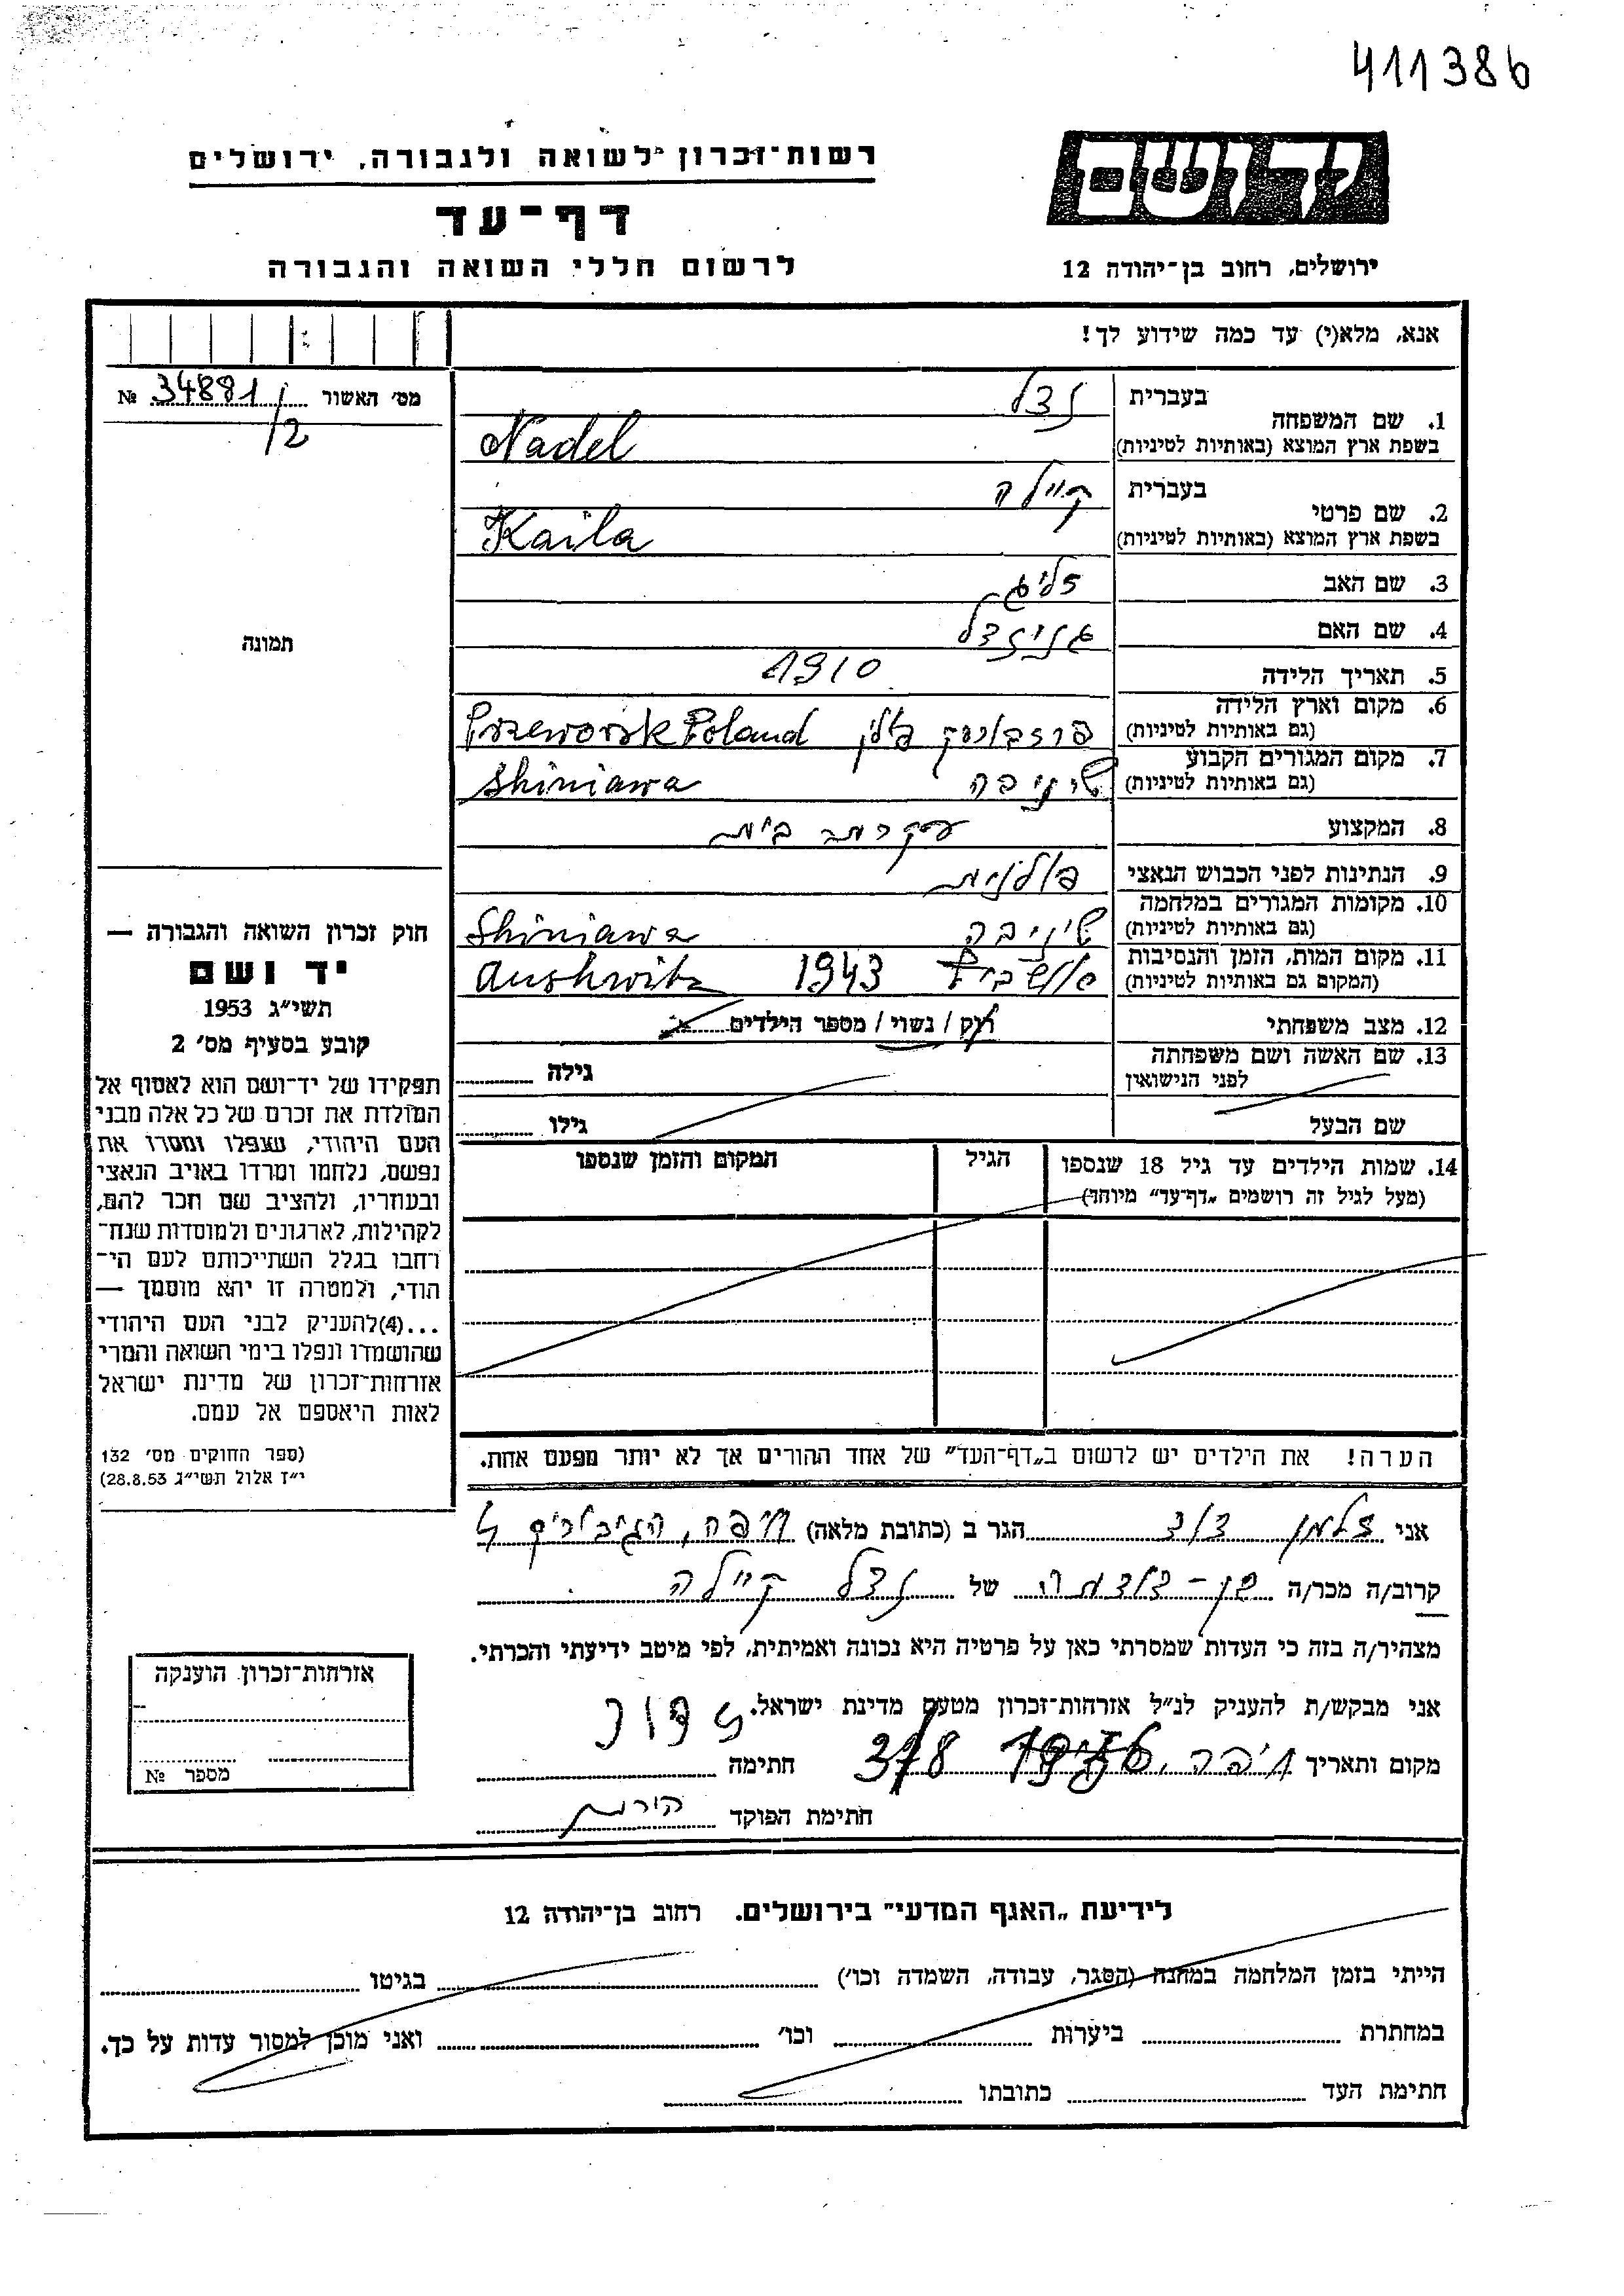 411386
רשות־זכרון לשואה ולגבורה, ירושלים
יד ושם
דף־עד
לרשום חללי השואה והגבורה
ירושלים, רחוב בן־יהודה 12
אנא, מלא(י) עד כמה שידוע לך!
מס׳ האשור 34881/2 №
1. שם המשפחה
בעברית נדל
בשפת ארץ המוצא (באותיות לטיניות) Nadel
2. שם פרטי
בעברית קיילה
בשפת ארץ המוצא (באותיות לטיניות) Kaila
3. שם האב זליג
4. שם האם
5. תאריך הלידה 1910
6. מקום וארץ הלידה
(גם באותיות לטיניות) פרזבורסק פולין Przeworsk Poland
7. מקום המגורים הקבוע
(גם באותיות לטיניות) שיניבה Shiniawa
8. המקצוע עקרת בית
9. הנתינות לפני הכבוש הנאצי פולנית
10. מקומות המגורים במלחמה
(גם באותיות לטיניות) שיניבה Shiniawa
11. מקום המות, הזמן והנסיבות
(המקום גם באותיות לטיניות) אושביץ 1943 Aushwitz
12. מצב משפחתי רוק / נשוי / מספר הילדים
13. שם האשה ושם משפחתה
לפני הנישואין
גילה
שם הבעל גילו
14. שמות הילדים עד גיל 18 שנספו הגיל המקום והזמן שנספו
(מעל לגיל זה רושמים „דף־עד״ מיוחד)
הערה! את הילדים יש לרשום ב„דף־העד״ של אחד ההורים אך לא יותר מפעם אחת.
תמונה
חוק זכרון השואה והגבורה —
יד ושם
תשי״ג 1953
קובע בסעיף מס׳ 2
תפקידו של יד־ושם הוא לאסוף אל
המולדת את זכרם של כל אלה מבני
העם היהודי, שנפלו ומסרו את
נפשם, נלחמו ומרדו באויב הנאצי
ובעוזריו, ולהציב שם וזכר להם,
לקהילות, לארגונים ולמוסדות שנח־
רחבו בגלל השתייכותם לעם הי־
הודי, ולמטרה זו יהא מוסמך —
...(4)להעניק לבני העם היהודי
שהושמדו ונפלו בימי השואה והמרי
אזרחות־זכרון של מדינת ישראל
לאות היאספם אל עמם.
(ספר החוקים מס׳ 132
י״ז אלול תשי״ג 28.8.53)
אני זלמן הגר ב (כתובת מלאה) חיפה,
קרוב/ה מכר/ה של נדל קיילה
מצהיר/ה בזה כי העדות שמסרתי כאן על פרטיה היא נכונה ואמיתית, לפי מיטב ידיעתי והכרתי.
אני מבקש/ת להעניק לנ״ל אזרחות־זכרון מטעם מדינת ישראל.
מקום ותאריך חיפה, 3/8 חתימה
חתימת הפוקד
אזרחות־זכרון הוענקה
מספר №
לידיעת „האגף המדעי״ בירושלים. רחוב בן־יהודה 12
הייתי בזמן המלחמה במחנה (הסגר, עבודה, השמדה וכו׳) בגיטו
במחתרת ביערות וכו׳ ואני מוכן למסור עדות על כך.
חתימת העד כתובתו